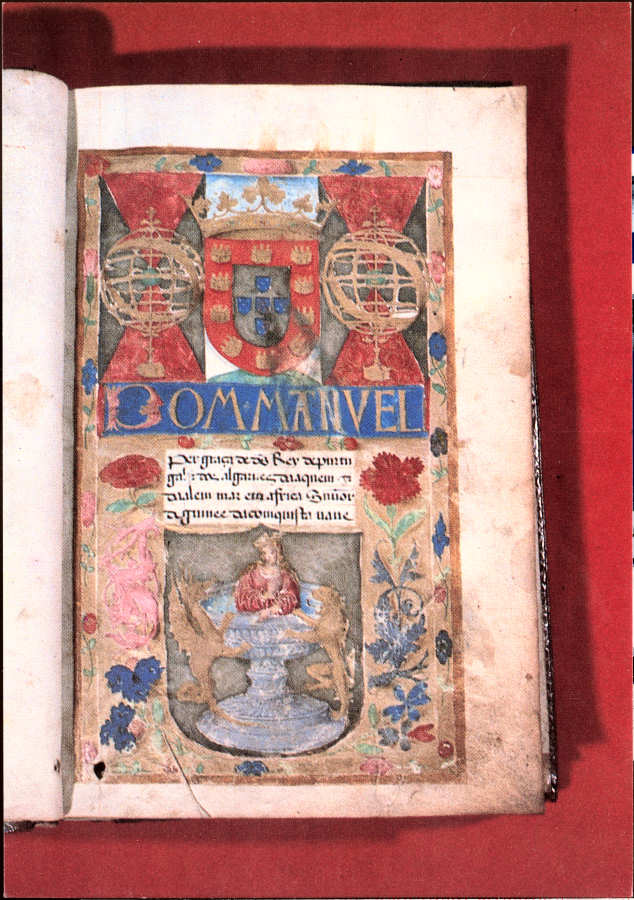 DOM·MANVEL
Per graça de ds Rey de purtu
gal ⁊ dos algarues daaquem ⁊
daalem mar em africa Snnor
de guinee da comquista naue